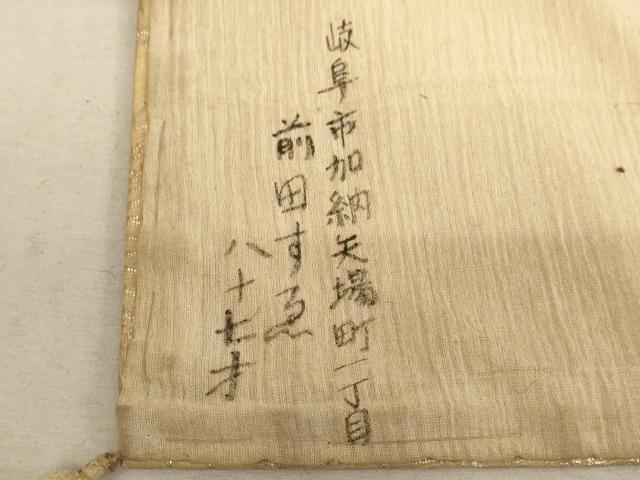 岐阜市加納矢場町一丁目
前田すゑ
八十七才